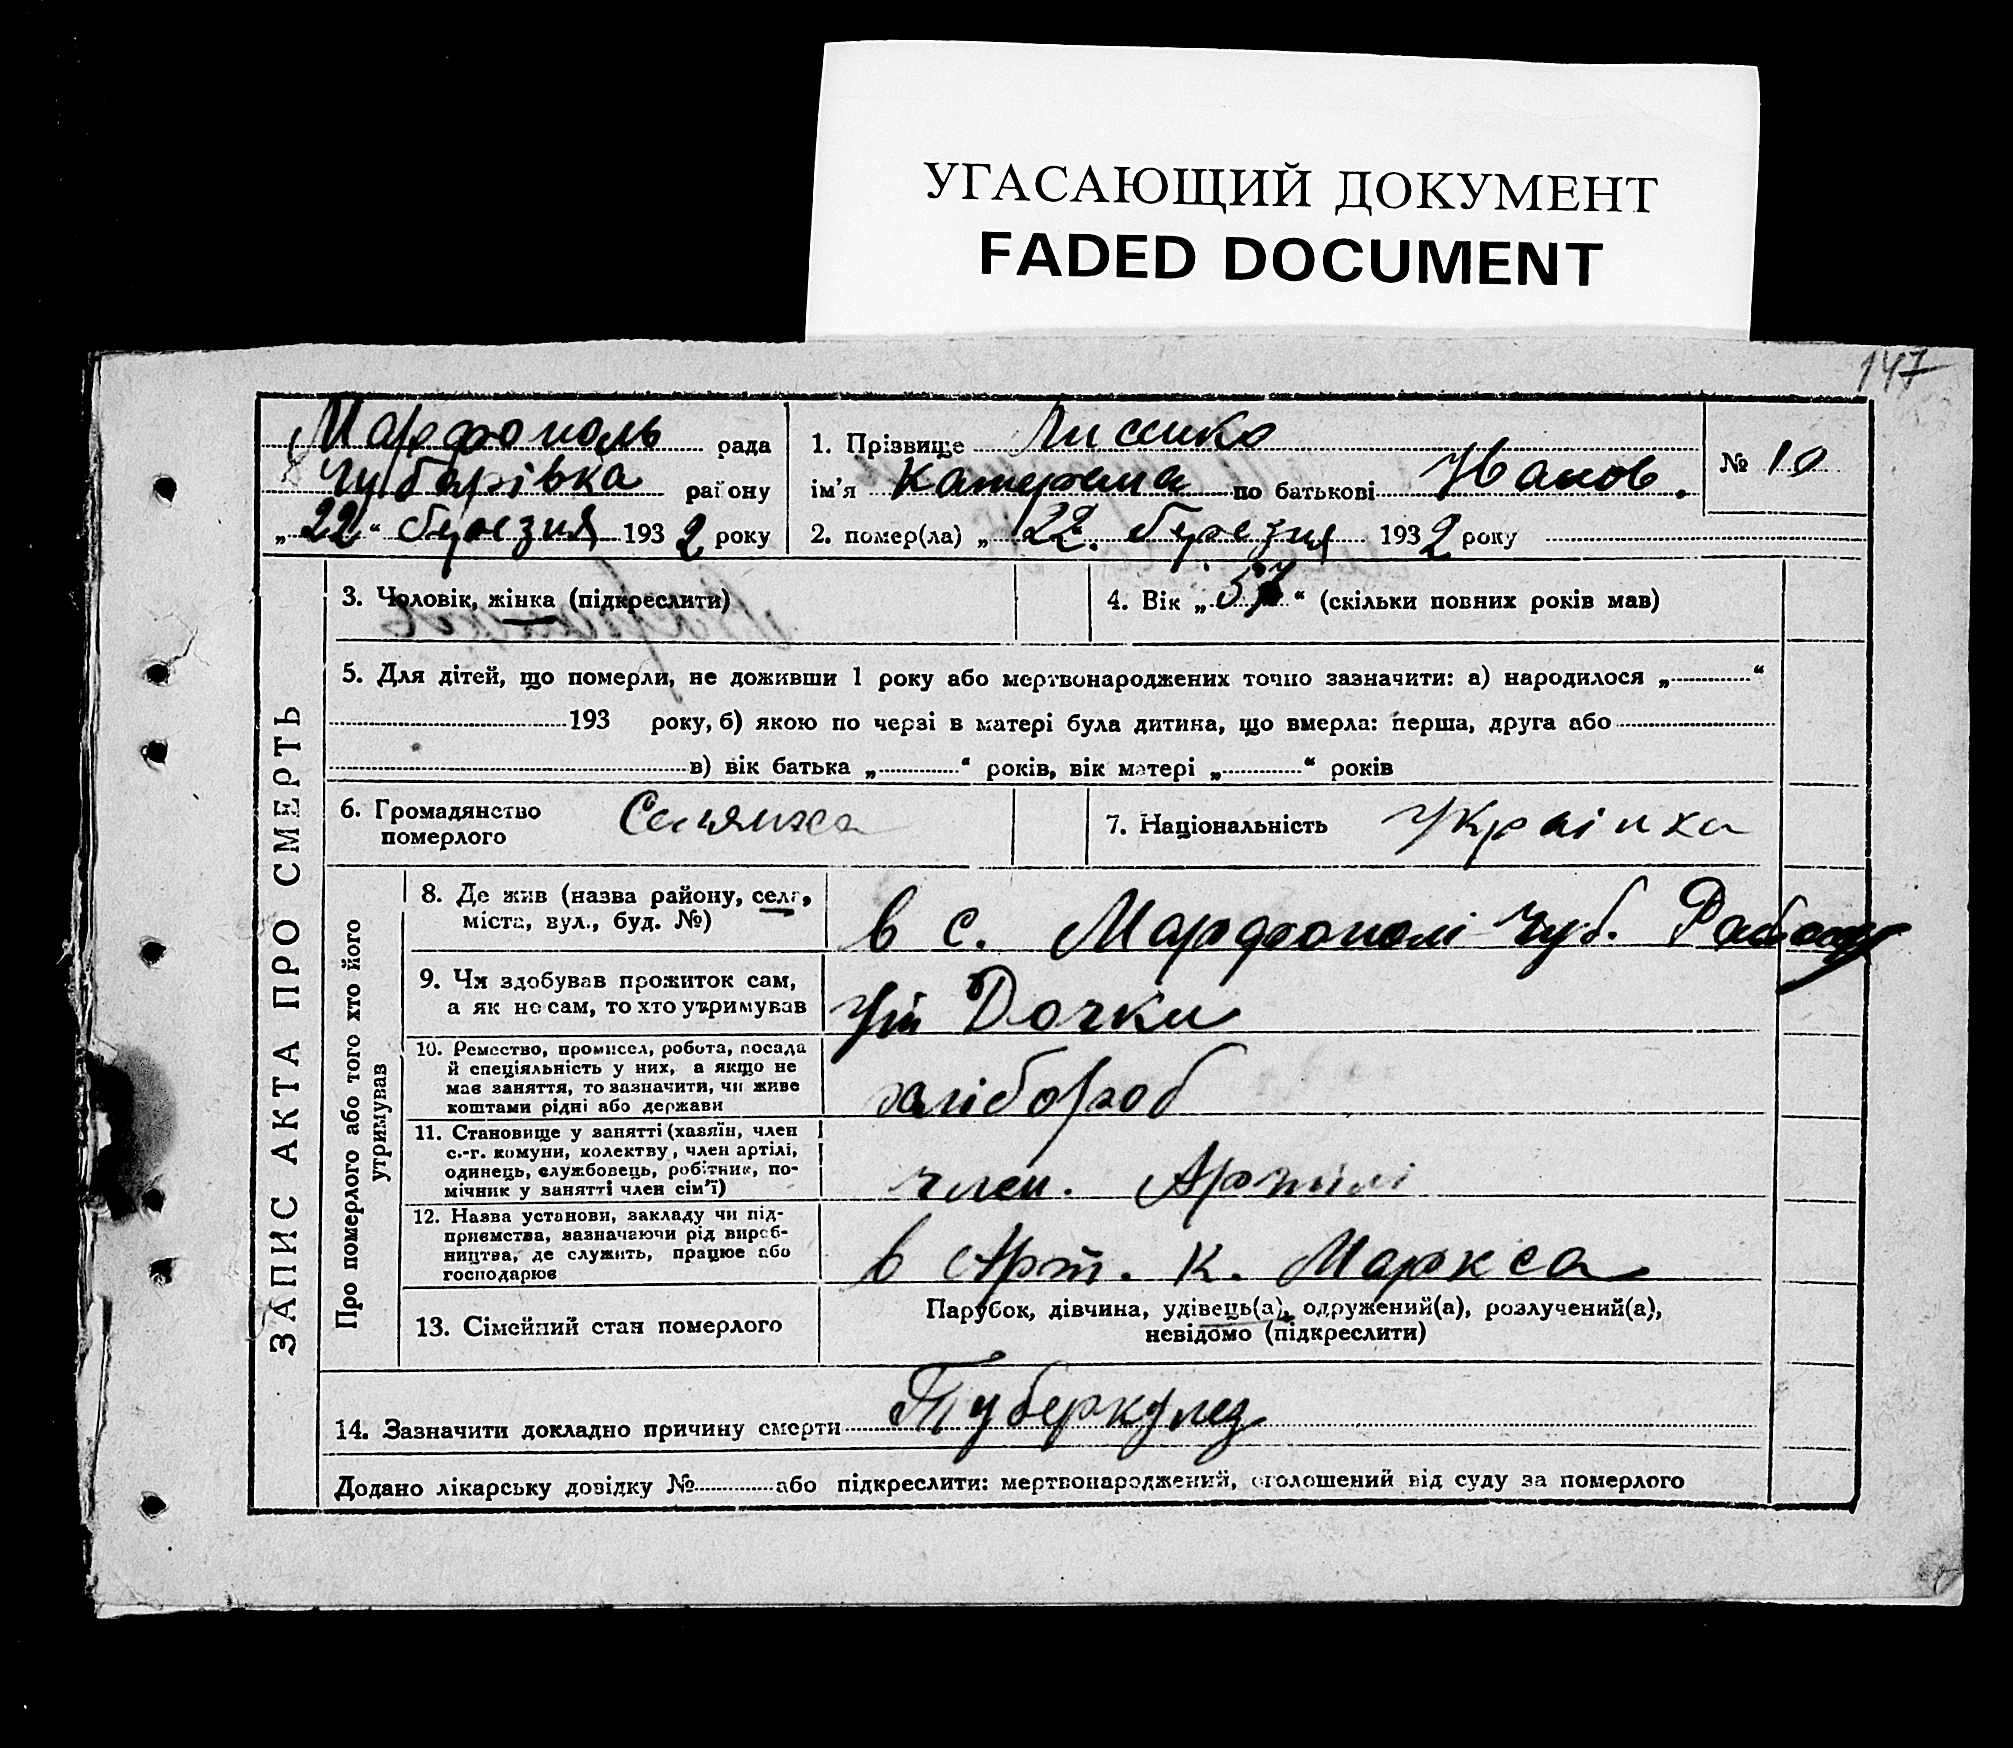 УГАСАЮЩИЙ ДОКУМЕНТ
FADED DOCUMENT
147
Марфополь рада
Чубарівка району
„22“ березня 1932 року
1. Прізвище Лисенко
ім’я Катерина по батькові Іванов.
2. помер(ла) „22. березня 1932 року
№ 10
ЗАПИС АКТА ПРО СМЕРТЬ
3. Чоловік, жінка (підкреслити)
4. Вік „ “ (скільки повних років мав)
5. Для дітей, що померли, не доживши 1 року або мертвонароджених точно зазначити: а) народилося „ “
193 року, б) якою по черзі в матері була дитина, що вмерла: перша, друга або
в) вік батька „ “ років, вік матері „ “ років
6. Громадянство
померлого
Селянка
7. Національність Українка
Про померлого або того хто його
утримував
8. Де жив (назва району, села,
міста, вул., буд. №)
в с. Марфополі Чуб.
9. Чи здобував прожиток сам,
а як не сам, то хто утримував
Дочки
10. Ремество, промисел, робота, посада
й спеціяльність у них, а якщо не
мав заняття, то зазначити, чи живе
коштами рідні або держави
хлібороб
11. Становище у занятті (хазяїн, член
с.-г. комуни, колектву, член артілі,
одинець, службовець, робітник, по-
мічник у занятті член сім’ї)
член. Артілі
12. Назва установи, закладу чи під-
приємства, зазначаючи рід вироб-
ництва, де служить, працює або
господарює
в Арт. К. Маркса
13. Сімейний стан померлого
Парубок, дівчина, удівець(а), одружений(а), розлучений(а),
невідомо (підкреслити)
14. Зазначити докладно причину смерти Туберкулез
Додано лікарську довідку № або підкреслити: мертвонароджений, оголошений від суду за померлого